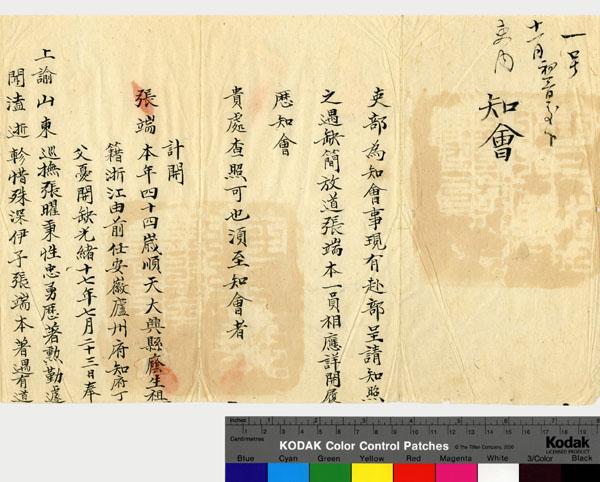 一号
十一月初三日
吏內
知會
吏部為知會事現有赴部呈請知照
之遇缺簡放道張端本一員相應詳開履
歷知會
貴處查照可也須至知會者
計開
張端本年四十四歲順天大興縣廕生祖
籍浙江由前任安徽廬州府知府丁
父憂開缺光緒十七年七月二十三日奉
上諭山東巡撫張曜秉性忠勇歷著勲勤遽
聞溘逝軫惜殊深伊子張端本著遇有道
inches 1 2 3 4 5 6 7 8
Centimetres
KODAK Color Control Patches © The Tiffen Company, 2000
Kodak
LICENSED PRODUCT
Blue Cyan Green Yellow Red Magenta White 3/Color Black